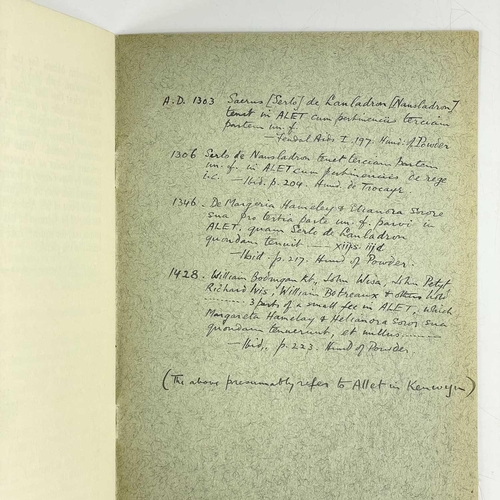 A.D. 1303 Saerus [Serlo] de Lanladron [Nansladron]
tenet in ALET cum pertinenciis terciam
partem un. f.
— Feudal Aids I. 197. Hund. of Powder
1306 Serlo de Nansladron tenet terciam partem
un. f. in ALET cum pertinenciis de rege
i.c. — Ibid. p. 204. Hund. de Trocayr.
1346. De Margeria Hameley & Elianora sorore
sua pro tertia parte un. f. parvi in
ALET, quam Serlo de Lanladron
quondam tenuit — xiijs. iijd.
— Ibid. p. 217. Hund of Powder.
1428. William Bodrugan Kt., John Wisa, John Petyt
Richard Nis, William Botreaux & others hold
3 parts of a small fee in ALET, which
Margareta Hamelay & Helianora Soror sua
quondam tenuerunt, et nullus
— Ibid., p. 223. Hund of Powder
(The above presumably refers to Allet in Kenwyn)